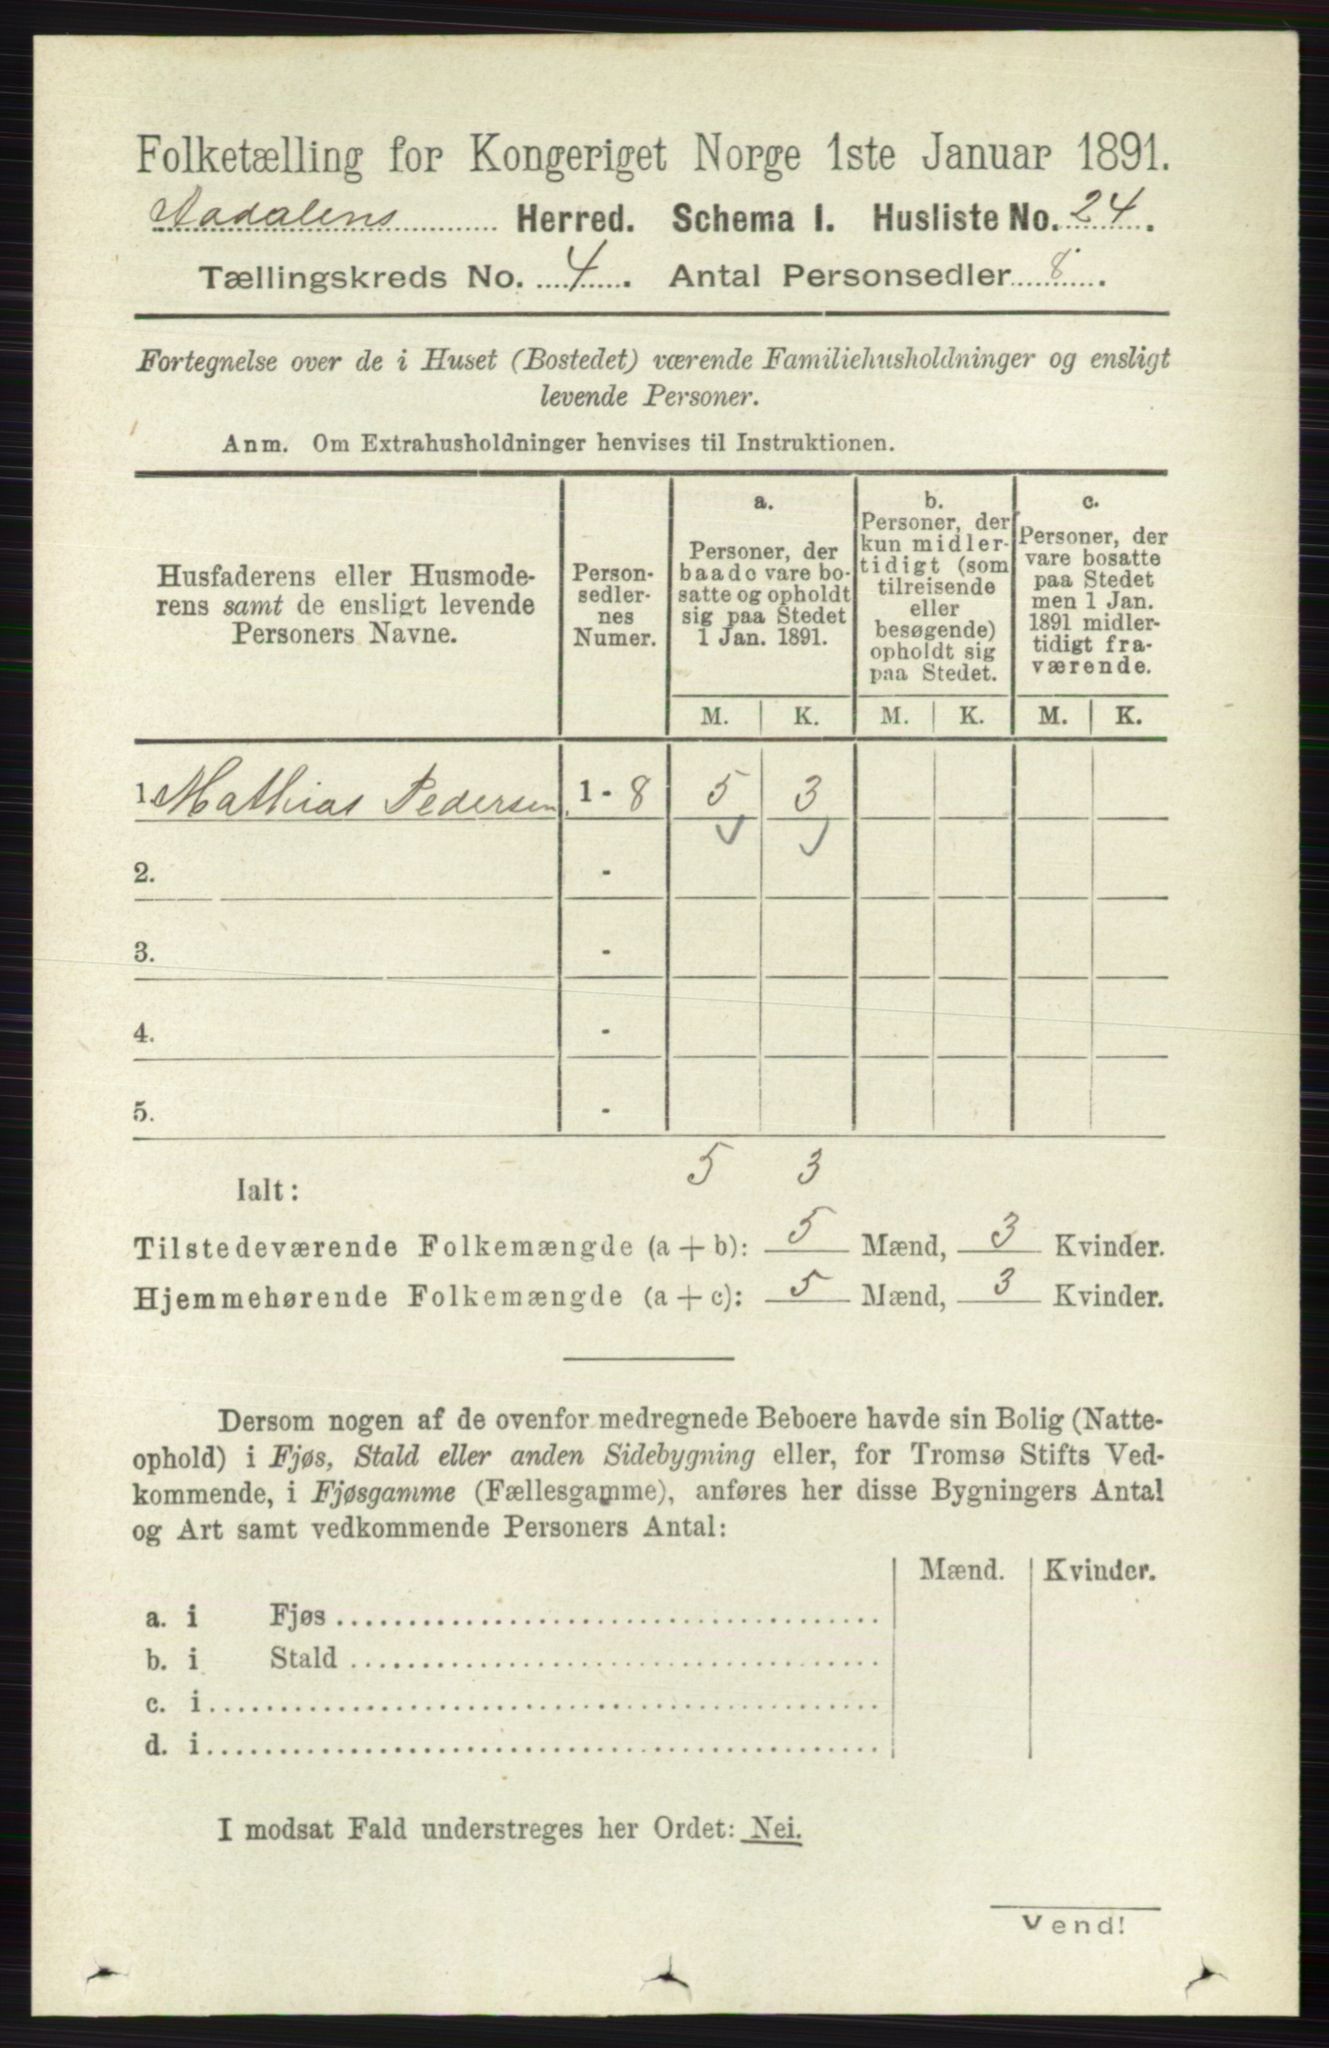 Folketælling for Kongeriget Norge 1ste Januar 1891.
Aadalens Herred. Schema I. Husliste No. 24.
Tællingskreds No. 4. Antal Personsedler 8.
Fortegnelse over de i Huset (Bostedet) værende Familiehusholdninger og ensligt
levende Personer.
Anm. Om Extrahusholdninger henvises til Instruktionen.
Husfaderens eller Husmode-
rens samt de ensligt levende
Personers Navne.
Person-
sedler-
nes
Numer.
a.
Personer, der
baade vare bo-
satte og opholdt
sig paa Stedet
1 Jan. 1891.
b.
Personer, der
kun midler-
tidigt (som
tilreisende
eller
besøgende)
opholdt sig
paa Stedet.
c.
Personer, der
vare bosatte
paa Stedet
men 1 Jan.
1891 midler-
tidigt fra-
værende.
M. K. M. K. M. K.
1. Mathias Pedersen. 1 - 8 5 3
2. -
3. -
4. -
5. -
5 3
Ialt:
Tilstedeværende Folkemængde (a + b): 5 Mænd, 3 Kvinder.
Hjemmehørende Folkemængde (a + c): 5 Mænd, 3 Kvinder.
Dersom nogen af de ovenfor medregnede Beboere havde sin Bolig (Natte-
ophold) i Fjøs, Stald eller anden Sidebygning eller, for Tromsø Stifts Ved-
kommende, i Fjøsgamme (Fællesgamme), anføres her disse Bygningers Antal
og Art samt vedkommende Personers Antal:
Mænd. Kvinder.
a. i Fjøs
b. i Stald
c. i
d. i
I modsat Fald understreges her Ordet: Nei.
Vend!